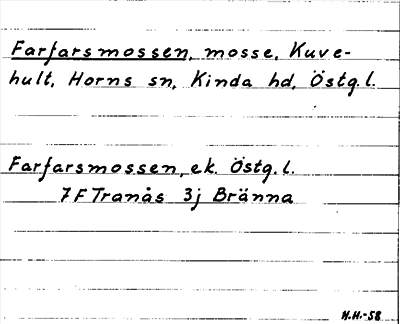 Farfarsmossen, mosse, Kuve-
hult, Horns sn, Kinda hd, Östg.l.
Farfarsmossen, ek. Östg.l.
7F Tranås 3j Bränna
H.H.-58